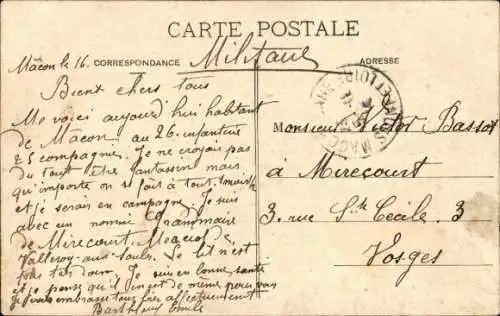 CARTE POSTALE
Mâcon le 16. CORRESPONDANCE Militaire ADRESSE
Bient chers tous
Me voici aujourd'hui habitant
de Mâcon. au 26. infanterie
25 compagnie. Je ne croyais pas
du tout être fantassin mais
qu'importe on si fait à tout.
et je serais en campagne. Je suis
avec un nommé Grandmaire
de Mirecourt.
Valleroy-aux-Saules. Le lit n'est
pas tas dom. Je suis en bonne santé
et je pense qu'il en est de même pour vous
Je vous embrasse tous fort affectueusement
Barthélemy Emile
Monsieur Victor Bassot
à Mirecourt
3. rue Ste Cécile. 3
Vosges